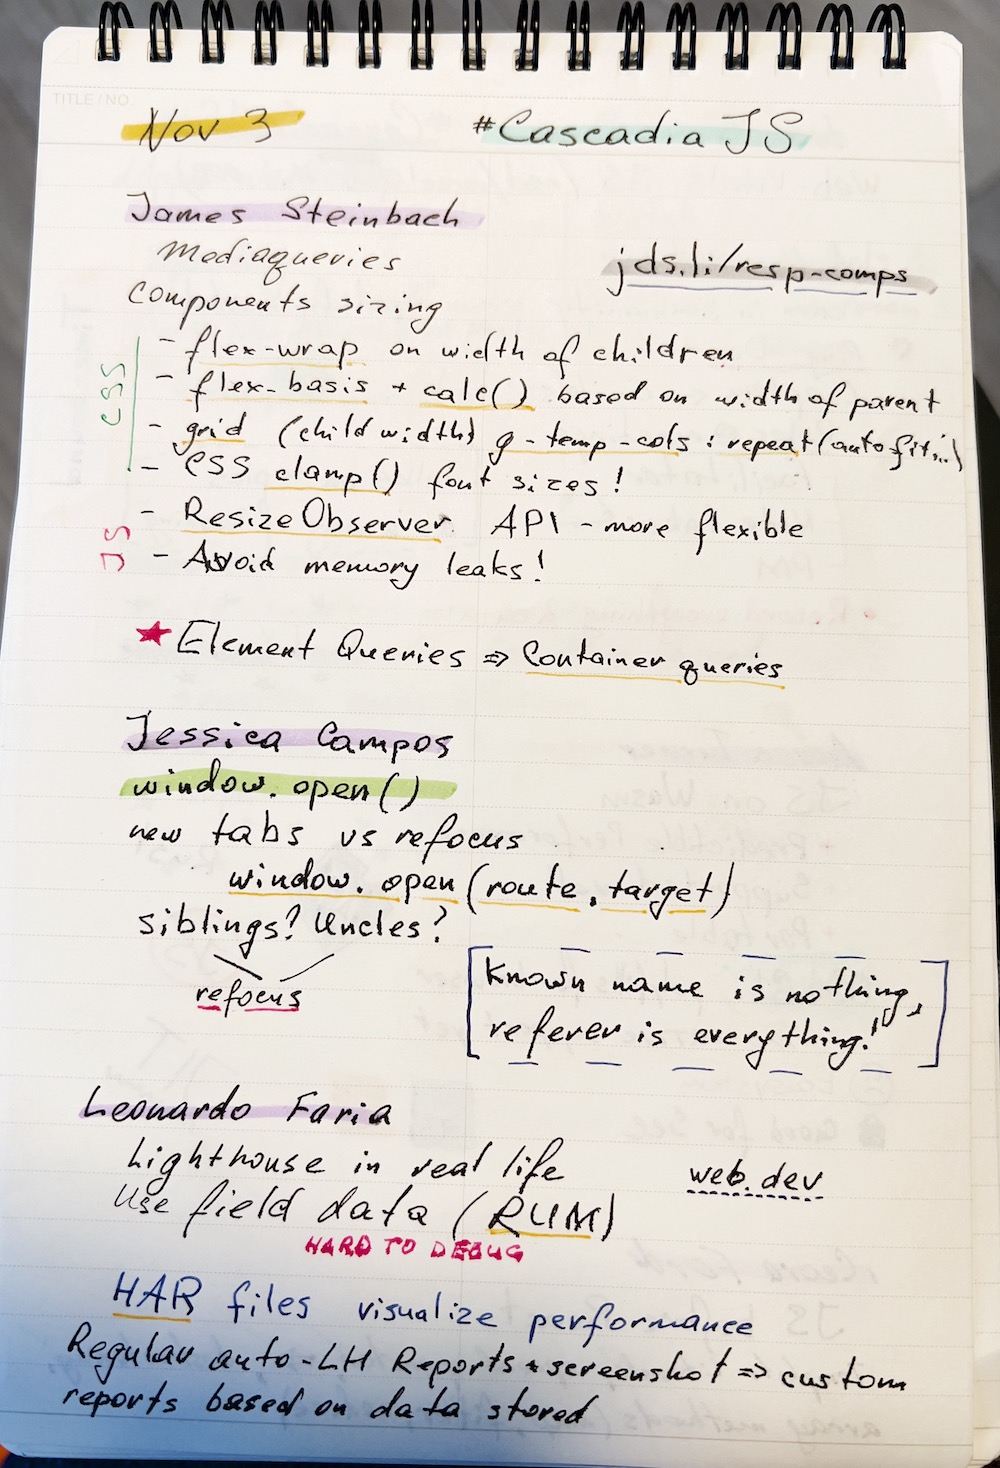 TITLE/NO.
Nov 3 #Cascadia JS
James Steinbach
Mediaqueries
jds.li/resp-comps
Components sizing
CSS
- flex-wrap on width of children
- flex-basis + calc() based on width of parent
- grid (child width) g-temp-cols: repeat(autofit,..)
- CSS clamp() font sizes!
JS
- ResizeObserver API - more flexible
- Avoid memory leaks!
★ Element Queries => Container queries
Jessica Campos
window.open()
new tabs vs refocus
window.open(route, target)
siblings? Uncles?
refocus
[Known name is nothing,
referer is everything!]
Leonardo Faria
Lighthouse in real life
web.dev
Use field data (RUM)
HARD TO DEBUG
HAR files visualize performance
Regular auto-LH Reports + screenshot => custom
reports based on data stored